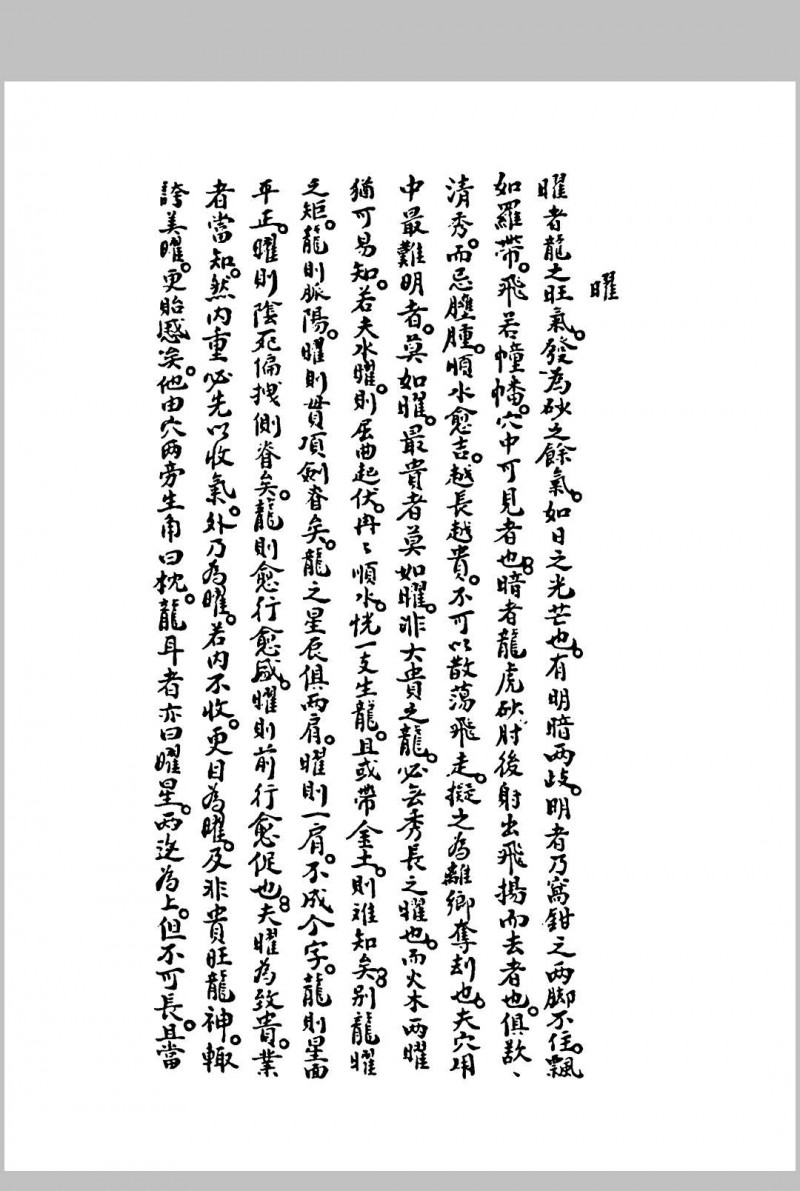 曜
曜者龍之旺氣。發為砂之餘氣。如日之光芒也。有明暗兩歧。明者乃窩鉗之兩脚不住。飄
如羅帶。飛若幢幡。穴中可見者也。暗者龍虎砂肘後射出飛揚而去者也。俱欵、
清秀。而忌臃腫。順水愈吉。越長越貴。不可以散蕩飛走。擬之為離鄉奪刦也。夫穴用
中最難明者。莫如曜。最貴者莫如曜。非大貴之龍。必无秀長之曜也。而火木兩曜
猶可易知。若夫水曜。則屈曲起伏。冉〻順水。恍一支生龍。且或帶金土。則难知矣。别龍曜
之矩。龍則脈陽。曜則貫項劍脊矣。龍之星辰俱兩肩。曜則一肩。不成个字。龍則星面
平正。曜則陰死偏拽側脊矣。龍則愈行愈盛。曜則前行愈促也。夫曜為致貴。業
者當知。然内重必先以收氣。外乃為曜。若内不收。更目為曜。及非貴旺龍神。輙
誇美曜。更貽慼矣。他由穴两旁生角曰枕。龍耳者亦曰曜星。两迻為上。但不可長。且當